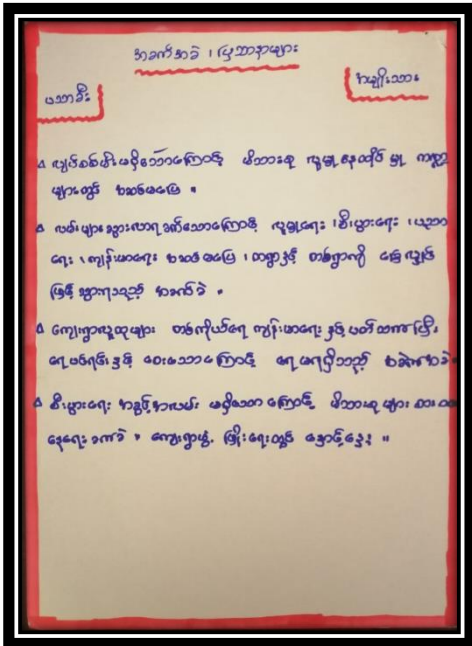 အခက်အခဲ ၊ ပြဿနာများ
ပသာခီး
အမျိုးသား
လျှပ်စစ်မီးမရှိသောကြောင့် မိသားစု လူမှုနေထိုင်မှု ကဏ္ဍ
များတွင် အဆင်မပြေ ။
လမ်းများသွားလာရခက်သောကြောင့် လူမှုရေး ၊ စီးပွားရေး ၊ ပညာ
ရေး ၊ ကျန်းမာရေး အဆင်မပြေ ၊ တရွာနှင့် တစ်ရွာကို ခြေလျှင်
ဖြင့် သွားရသည့် အခက်ခဲ ။
ကျေးရွာလူထုများ တစ်ကိုယ်ရေ ကျန်းမာရေး နှင့် ပတ်သကပြီး
ရေပင်ရင်းနှင့် ဝေးသောကြောင့် ရေမရရှိသည့် အခဲ
စီးပွားရေး အခွင့်အလမ်း မရှိသော ကြောင့် မိသားစုများ စား
နေရေး ခက်ခဲ ။ ကျေးရွာဖွံ့ ဖြိုးရေးတွင် နှောင့်နှေး ။